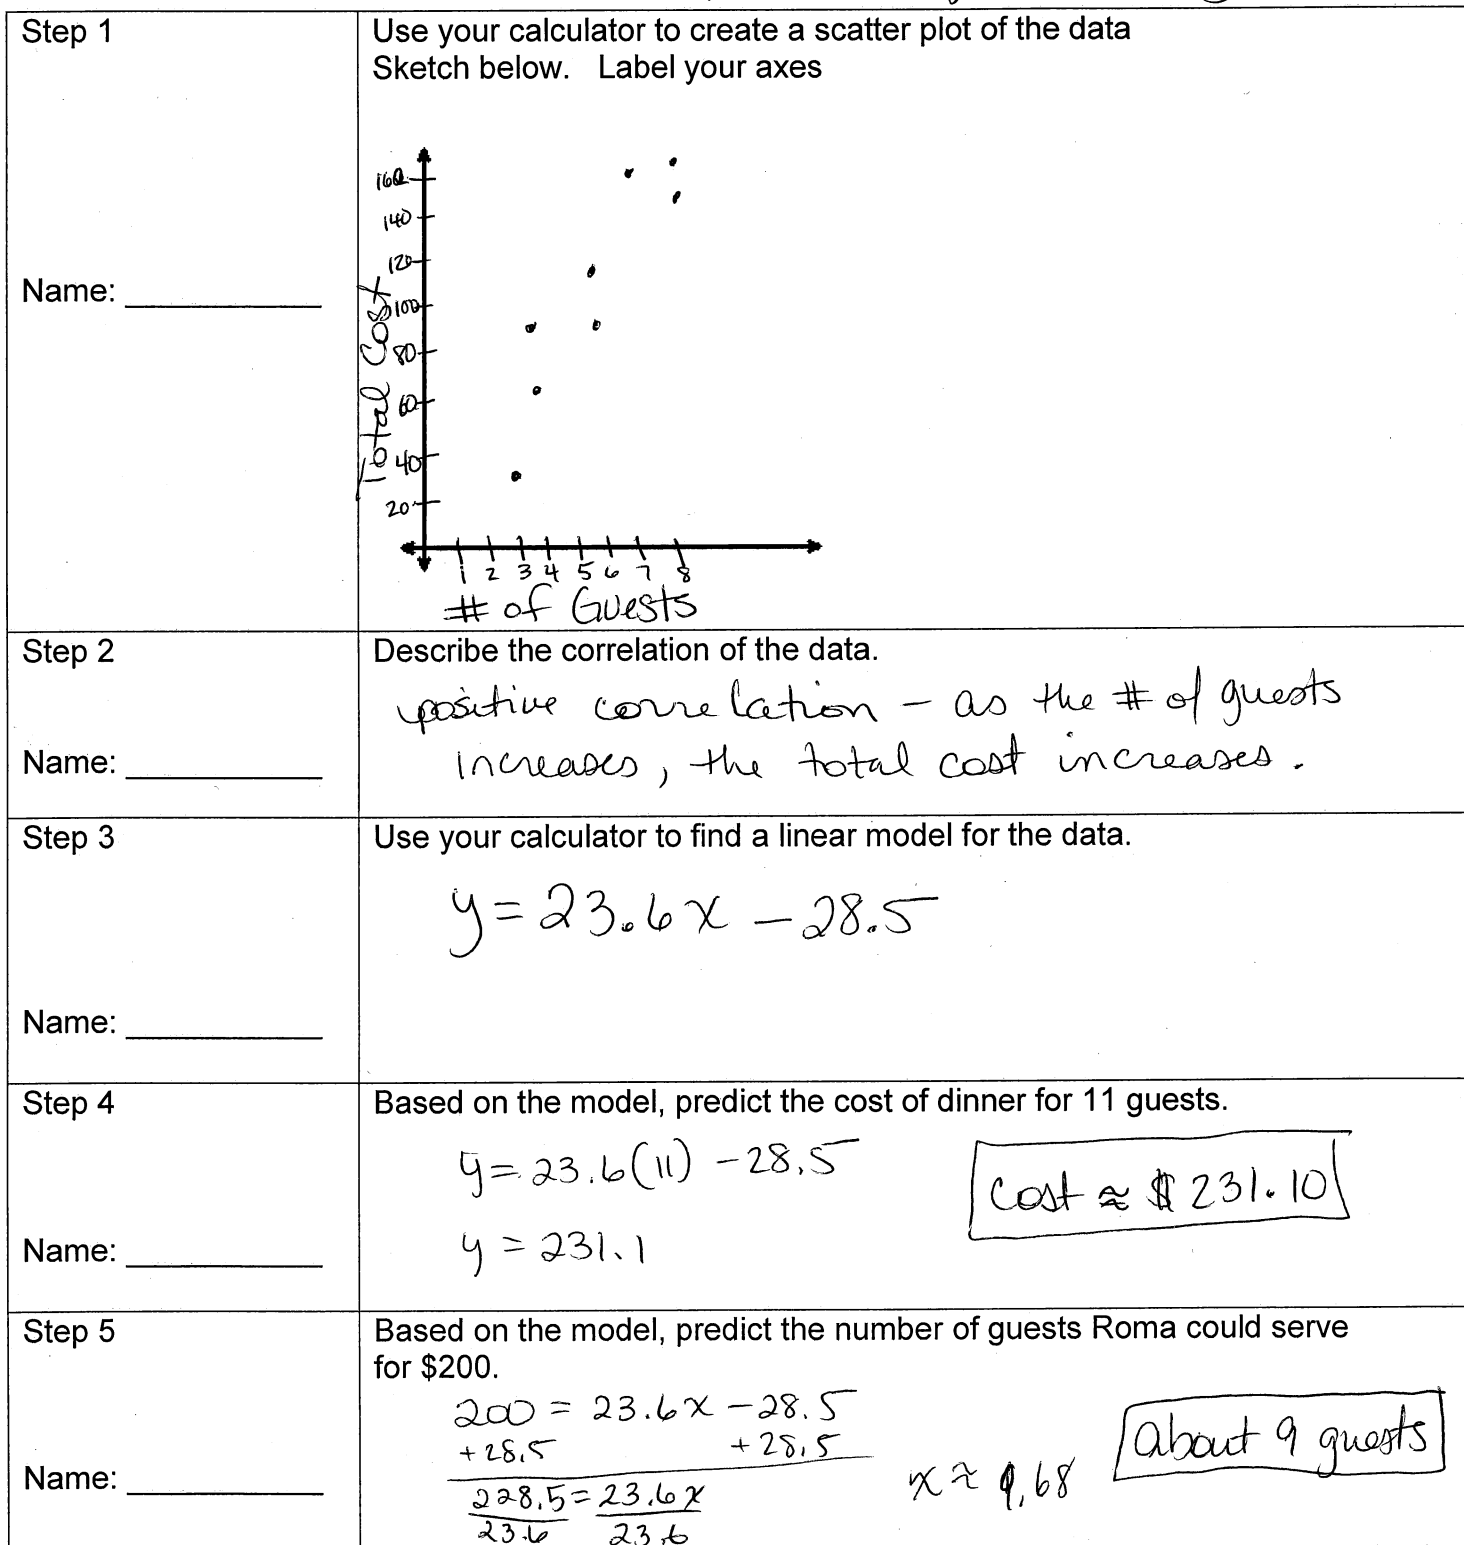 Step 1
Use your calculator to create a scatter plot of the data
Sketch below. Label your axes
Name:
160
140
120
100
80
60
40
20
Total Cost
1 2 3 4 5 6 7 8
# of Guests
Step 2
Describe the correlation of the data.
positive correlation – as the # of guests
increases, the total cost increases.
Name:
Step 3
Use your calculator to find a linear model for the data.
y = 23.6x – 28.5
Name:
Step 4
Based on the model, predict the cost of dinner for 11 guests.
y = 23.6(11) – 28.5
cost ≈ $231.10
y = 231.1
Name:
Step 5
Based on the model, predict the number of guests Roma could serve
for $200.
200 = 23.6x – 28.5
+28.5 +28.5
228.5 = 23.6x
23.6 23.6
x ≈ 9.68
about 9 guests
Name: